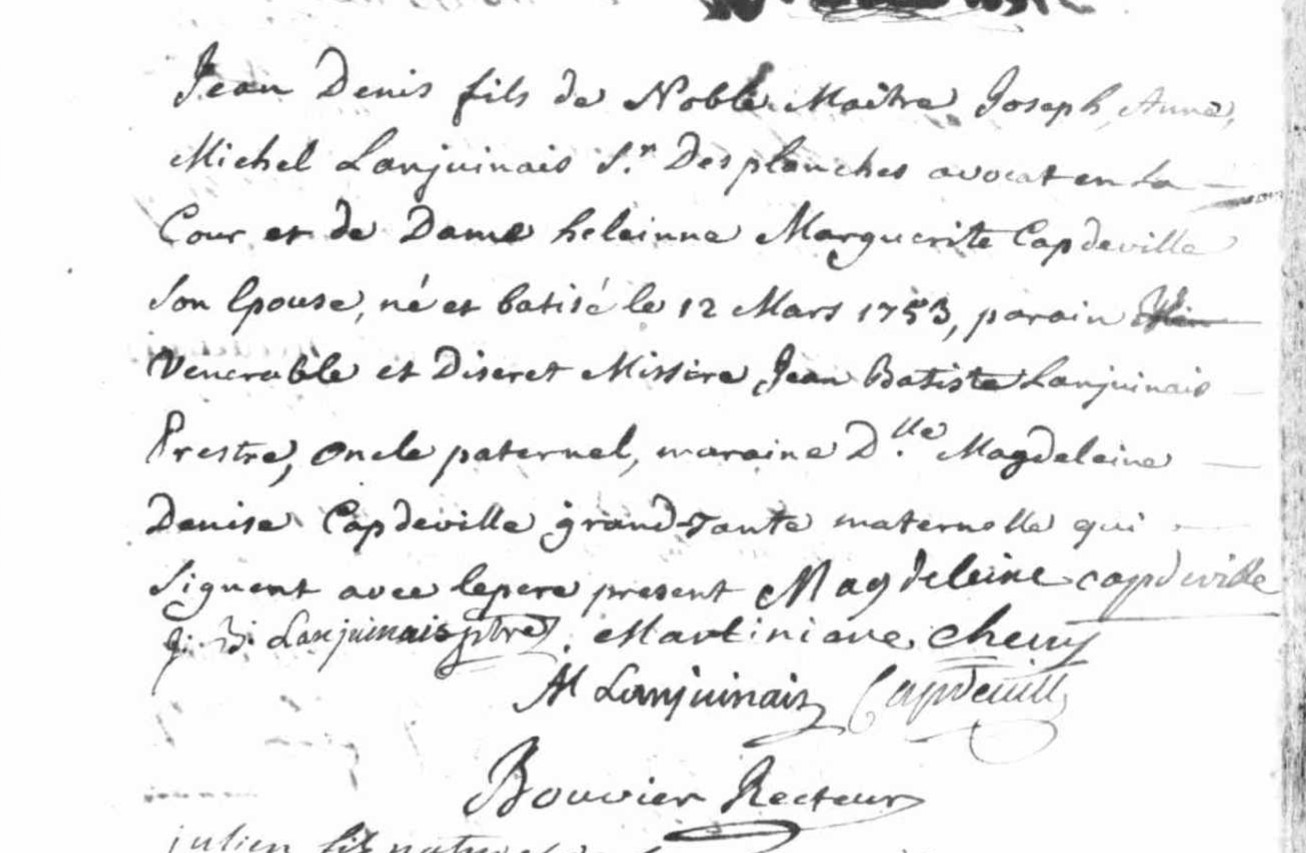 Jean Denis fils de Noble Maitre Joseph, Anne,
Michel Lanjuinais S.r Desplanches avocat en La
Cour et de Dame heleinne Marguerite Capdeville
Son Epouse, né et batisé le 12 Mars 1753, parain
Venerable et Discret Missire Jean Batiste Lanjuinais
Prestre, Oncle paternel, maraine D.lle Magdeleine
Denise Capdeville grand-Tante maternelle qui
Signent avec lepere present Magdeleine capdeville
j: B: Lanjuinais ptre. Martiniane cheury
M Lanjuinais Capdeville
Bouvier Recteur
julien fils naturel